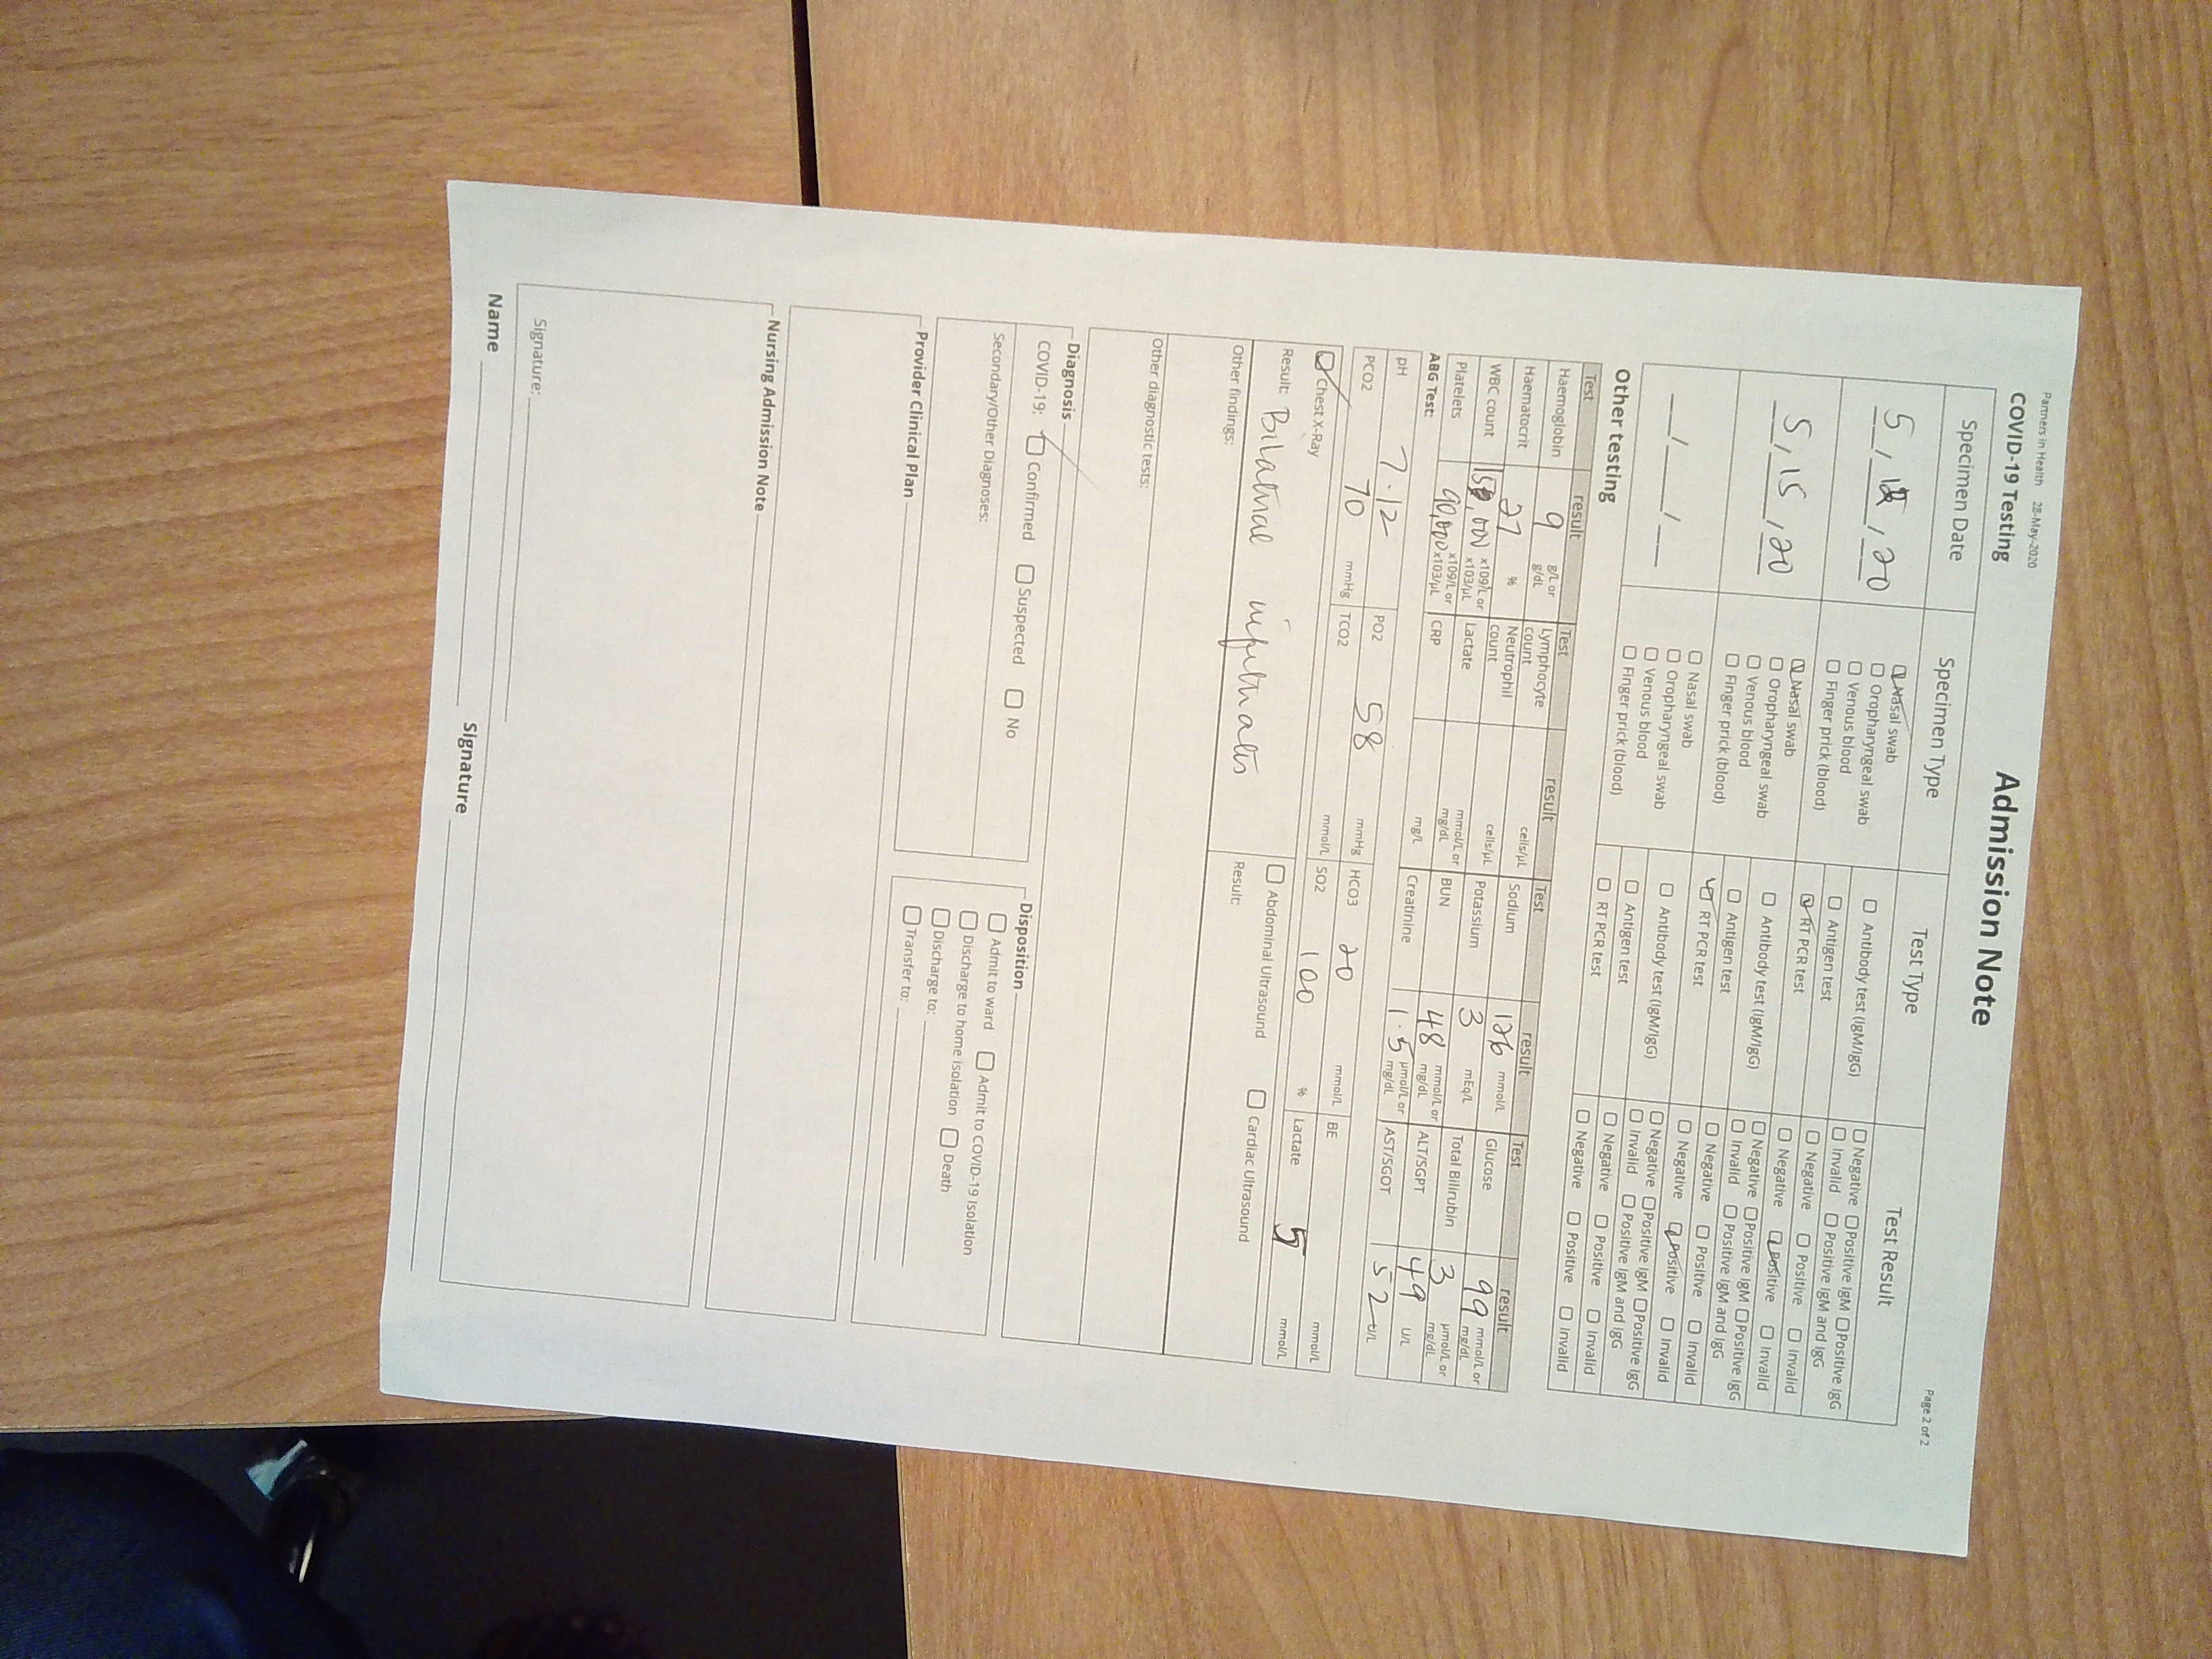 Partners in Health 28-May-2020
Page 2 of 2
Admission Note
COVID-19 Testing
Specimen Date Specimen Type Test Type Test Result
5 / / 20
☑ Nasal swab
☐ Oropharyngeal swab
☐ Venous blood
☐ Finger prick (blood)
☐ Antibody test (IgM/IgG)
☐ Negative ☐ Positive IgM ☐ Positive IgG
☐ Invalid ☐ Positive IgM and IgG
☐ Antigen test
☐ Negative ☐ Positive ☐ Invalid
☑ RT PCR test
☐ Negative ☑ Positive ☐ Invalid
5 / 15 / 20
☑ Nasal swab
☐ Oropharyngeal swab
☐ Venous blood
☐ Finger prick (blood)
☐ Antibody test (IgM/IgG)
☐ Negative ☐ Positive IgM ☐ Positive IgG
☐ Invalid ☐ Positive IgM and IgG
☐ Antigen test
☐ Negative ☐ Positive ☐ Invalid
☑ RT PCR test
☐ Negative ☑ Positive ☐ Invalid
__/__/__
☐ Nasal swab
☐ Oropharyngeal swab
☐ Venous blood
☐ Finger prick (blood)
☐ Antibody test (IgM/IgG)
☐ Negative ☐ Positive IgM ☐ Positive IgG
☐ Invalid ☐ Positive IgM and IgG
☐ Antigen test
☐ Negative ☐ Positive ☐ Invalid
☐ RT PCR test
☐ Negative ☐ Positive ☐ Invalid
Other testing
Test result Test result Test result Test result
Haemoglobin 9 g/L or g/dL Lymphocyte count cells/µL Sodium 126 mmol/L Glucose 99 mmol/L or mg/dL
Haematocrit 27 % Neutrophil count cells/µL Potassium 3 mEq/L Total Bilirubin 3 µmol/L or mg/dL
WBC count ,000 x109/L or x103/µL Lactate mmol/L or mg/dL BUN 48 mmol/L or mg/dL ALT/SGPT 49 U/L
Platelets 90,000 x109/L or x103/µL CRP mg/L Creatinine 1.5 µmol/L or mg/dL AST/SGOT 52 U/L
ABG Test:
pH 7.12 PO2 58 mmHg HCO3 20 mmol/L BE mmol/L
PCO2 70 mmHg TCO2 mmol/L SO2 100 % Lactate 5 mmol/L
☑ Chest X-Ray ☐ Abdominal Ultrasound ☐ Cardiac Ultrasound
Result: Bilateral infiltrates Result:
Other findings:
Other diagnostic tests:
Diagnosis
COVID-19: ☑ Confirmed ☐ Suspected ☐ No
Secondary/Other Diagnoses:
Disposition
☐ Admit to ward ☐ Admit to COVID-19 Isolation
☐ Discharge to home isolation ☐ Death
☐ Discharge to:
☐ Transfer to:
Provider Clinical Plan
Nursing Admission Note
Signature:
Name Signature